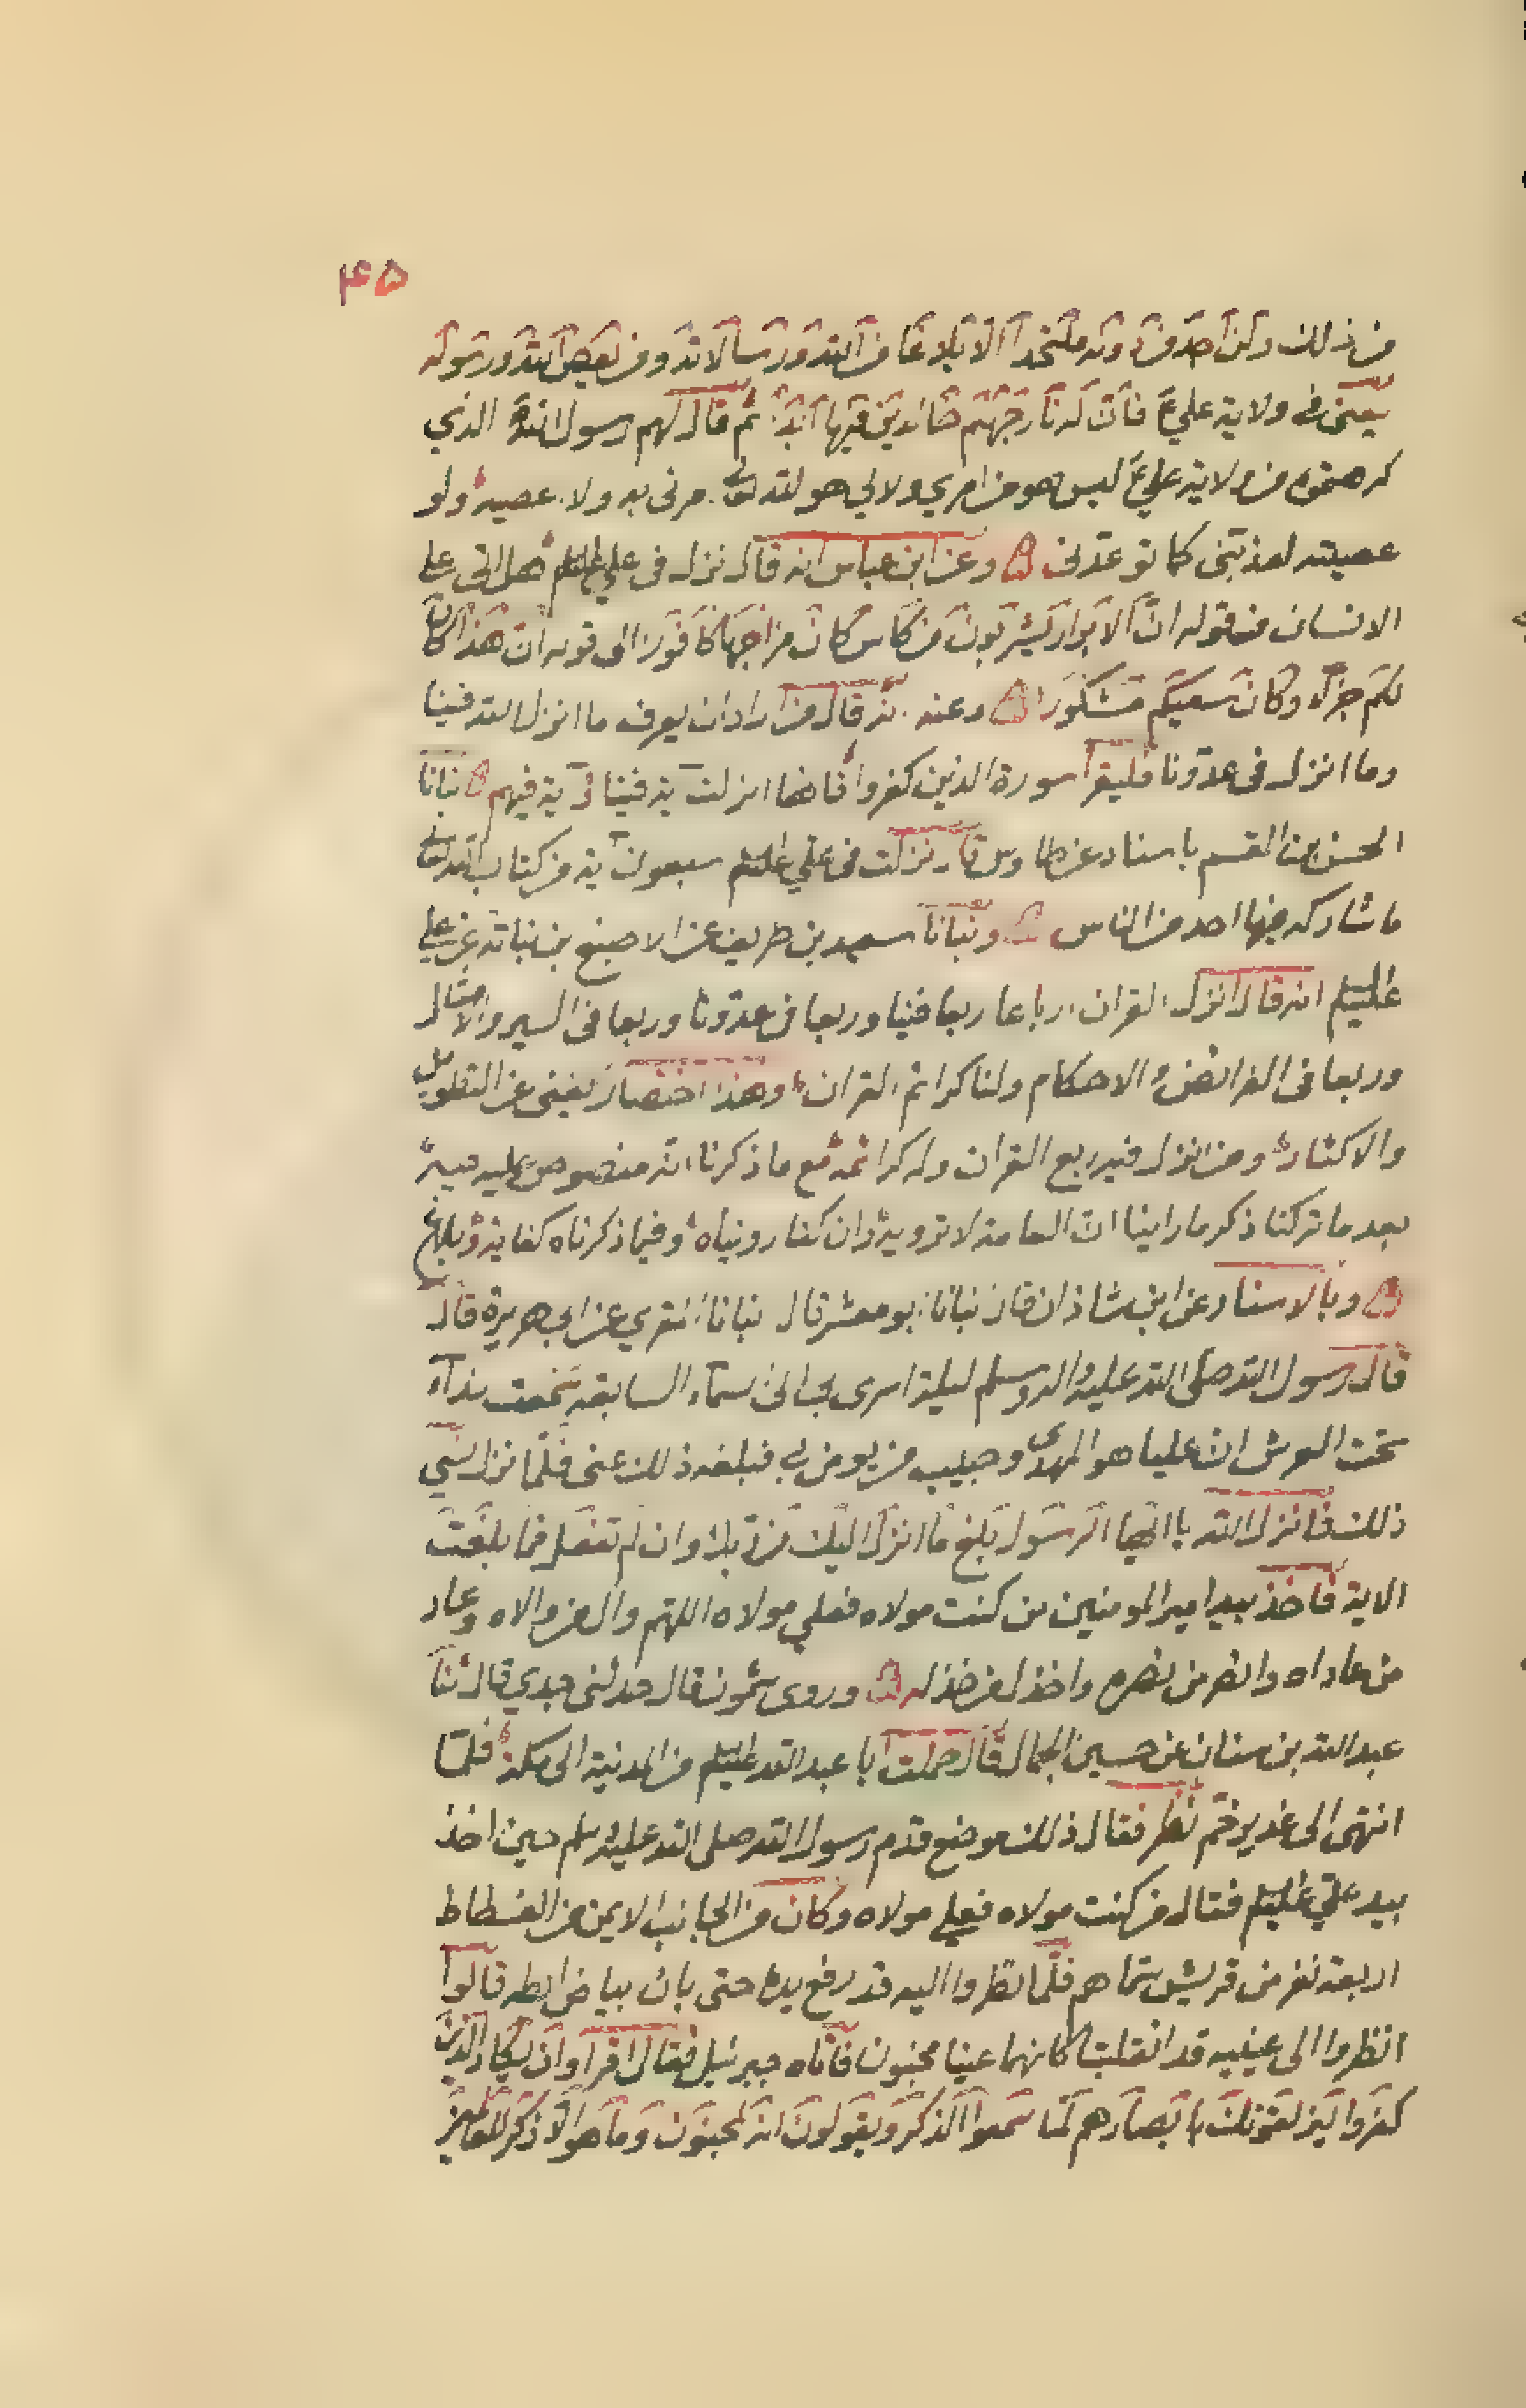 ۴۵
من ذلك ولن اجد من دونه ملتحدا الا بلاغا من الله ورسالاته ومن يعص الله ورسوله
يعني في ولاية علي ع فان له نار جهنم خالدين فيها ابدا ثم قال لهم رسول الله الذي
كرهتموه من ولاية علي ع ليس هو من امري ولا لي هو لله تعالى امرني به ولا اعصيه ولو
عصيته لعذبني كما توعدني وعن ابن عباس انه قال نزل في علي عليه السلم هل اتى على
الانسان من قوله ان الابرار يشربون من كاس كان مزاجها كافورا الى قوله ان هذا كان
لكم جزاء وكان سعيكم مشكورا وعنه انه قال من اراد ان يعرف ما انزل الله فينا
وما انزل في عدونا فليقرا سورة الذين كفروا فانها انزلت اية فينا واية فيهم نبانا
الحسن بن القسم باسناد عن طاوس قال نزلت في علي عليه السلم سبعون اية من كتاب الله تعالى
ما شاركه فيها احد من الناس ونبانا سعيد بن طريف عن الاصبغ بن نباتة عن علي
عليه السلم انه قال انزل القران ارباعا ربعا فينا وربعا في عدونا وربعا في السير والامثال
وربعا في الفرائض والاحكام ولنا كرائم القران وهذا اختصار يغني عن التطويل
والاكثار ومن انزل فيه ربع القران وله كرائمه مع ما ذكرنا انه منصوص عليه
بعد ما تركنا ذكر ما راينا ان العامة لا ترويه وان كنا رويناه وفيما ذكرناه كفاية وبلاغ
وبالاسناد عن ابن شاذان قال نبانا ابو معشر قال نبانا المقري عن ابي هريرة قال
قال رسول الله صلى الله عليه واله وسلم ليلة اسري بي الى سماء السابعة سمعت نداء
تحت العرش ان عليا هو المهدى وحبيب من يومن بي فبلغه ذلك عني فلما نزل نسي
ذلك فانزل الله يا ايها الرسول بلغ ما انزل اليك من ربك وان لم تفعل فما بلغت
الاية فاخذ بيد امير المومنين من كنت مولاه فعلي مولاه اللهم وال من والاه وعاد
من عاداه وانصر من نصره واخذل من خذله وروى شمون قال حدثني جدي قال ثنا
عبد الله بن سنان عن حسين الجمال قال حملت ابا عبد الله عليه السلم من المدينة الى مكة فلما
انتهى الى غدير خم نظر فقال ذلك موضع قدم رسول الله صلى الله عليه وسلم حين اخذ
بيد علي عليه السلم فقال من كنت مولاه فعلي مولاه وكان من الجانب الايمن من الفسطاط
اربعة نفر من قريش سماهم فلما نظروا اليه قد رفع يده حتى بان بياض ابطه قالوا
انظروا الى عينيه قد انقلبتا كانهما عينا مجنون فاتاه جبرئيل فقال اقرا وان يكاد الذين
كفروا ليزلقونك بابصارهم لما سمعوا الذكر ويقولون انه لمجنون وما هو الا ذكر للعالمين